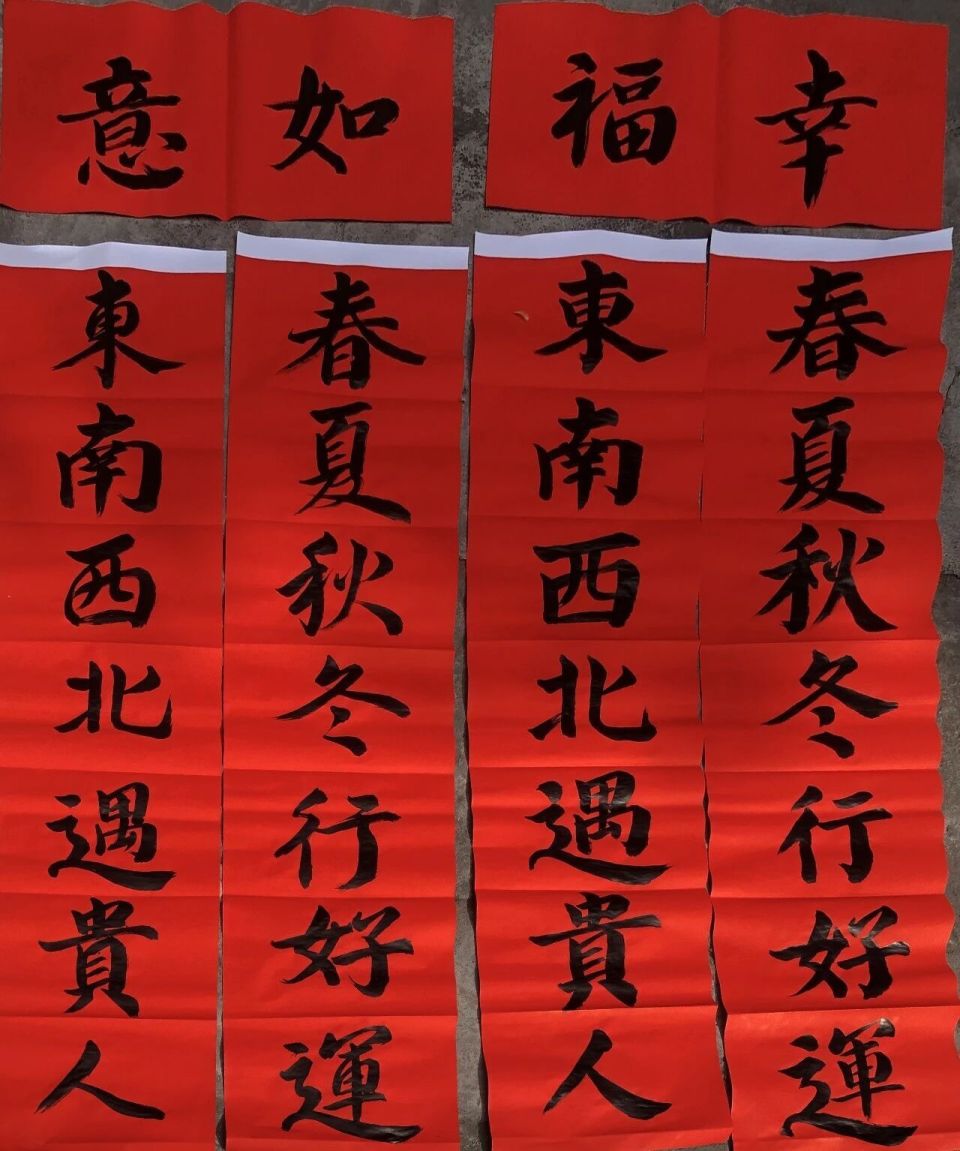 幸福
春夏秋冬行好運
東南西北遇貴人
如意
春夏秋冬行好運
東南西北遇貴人